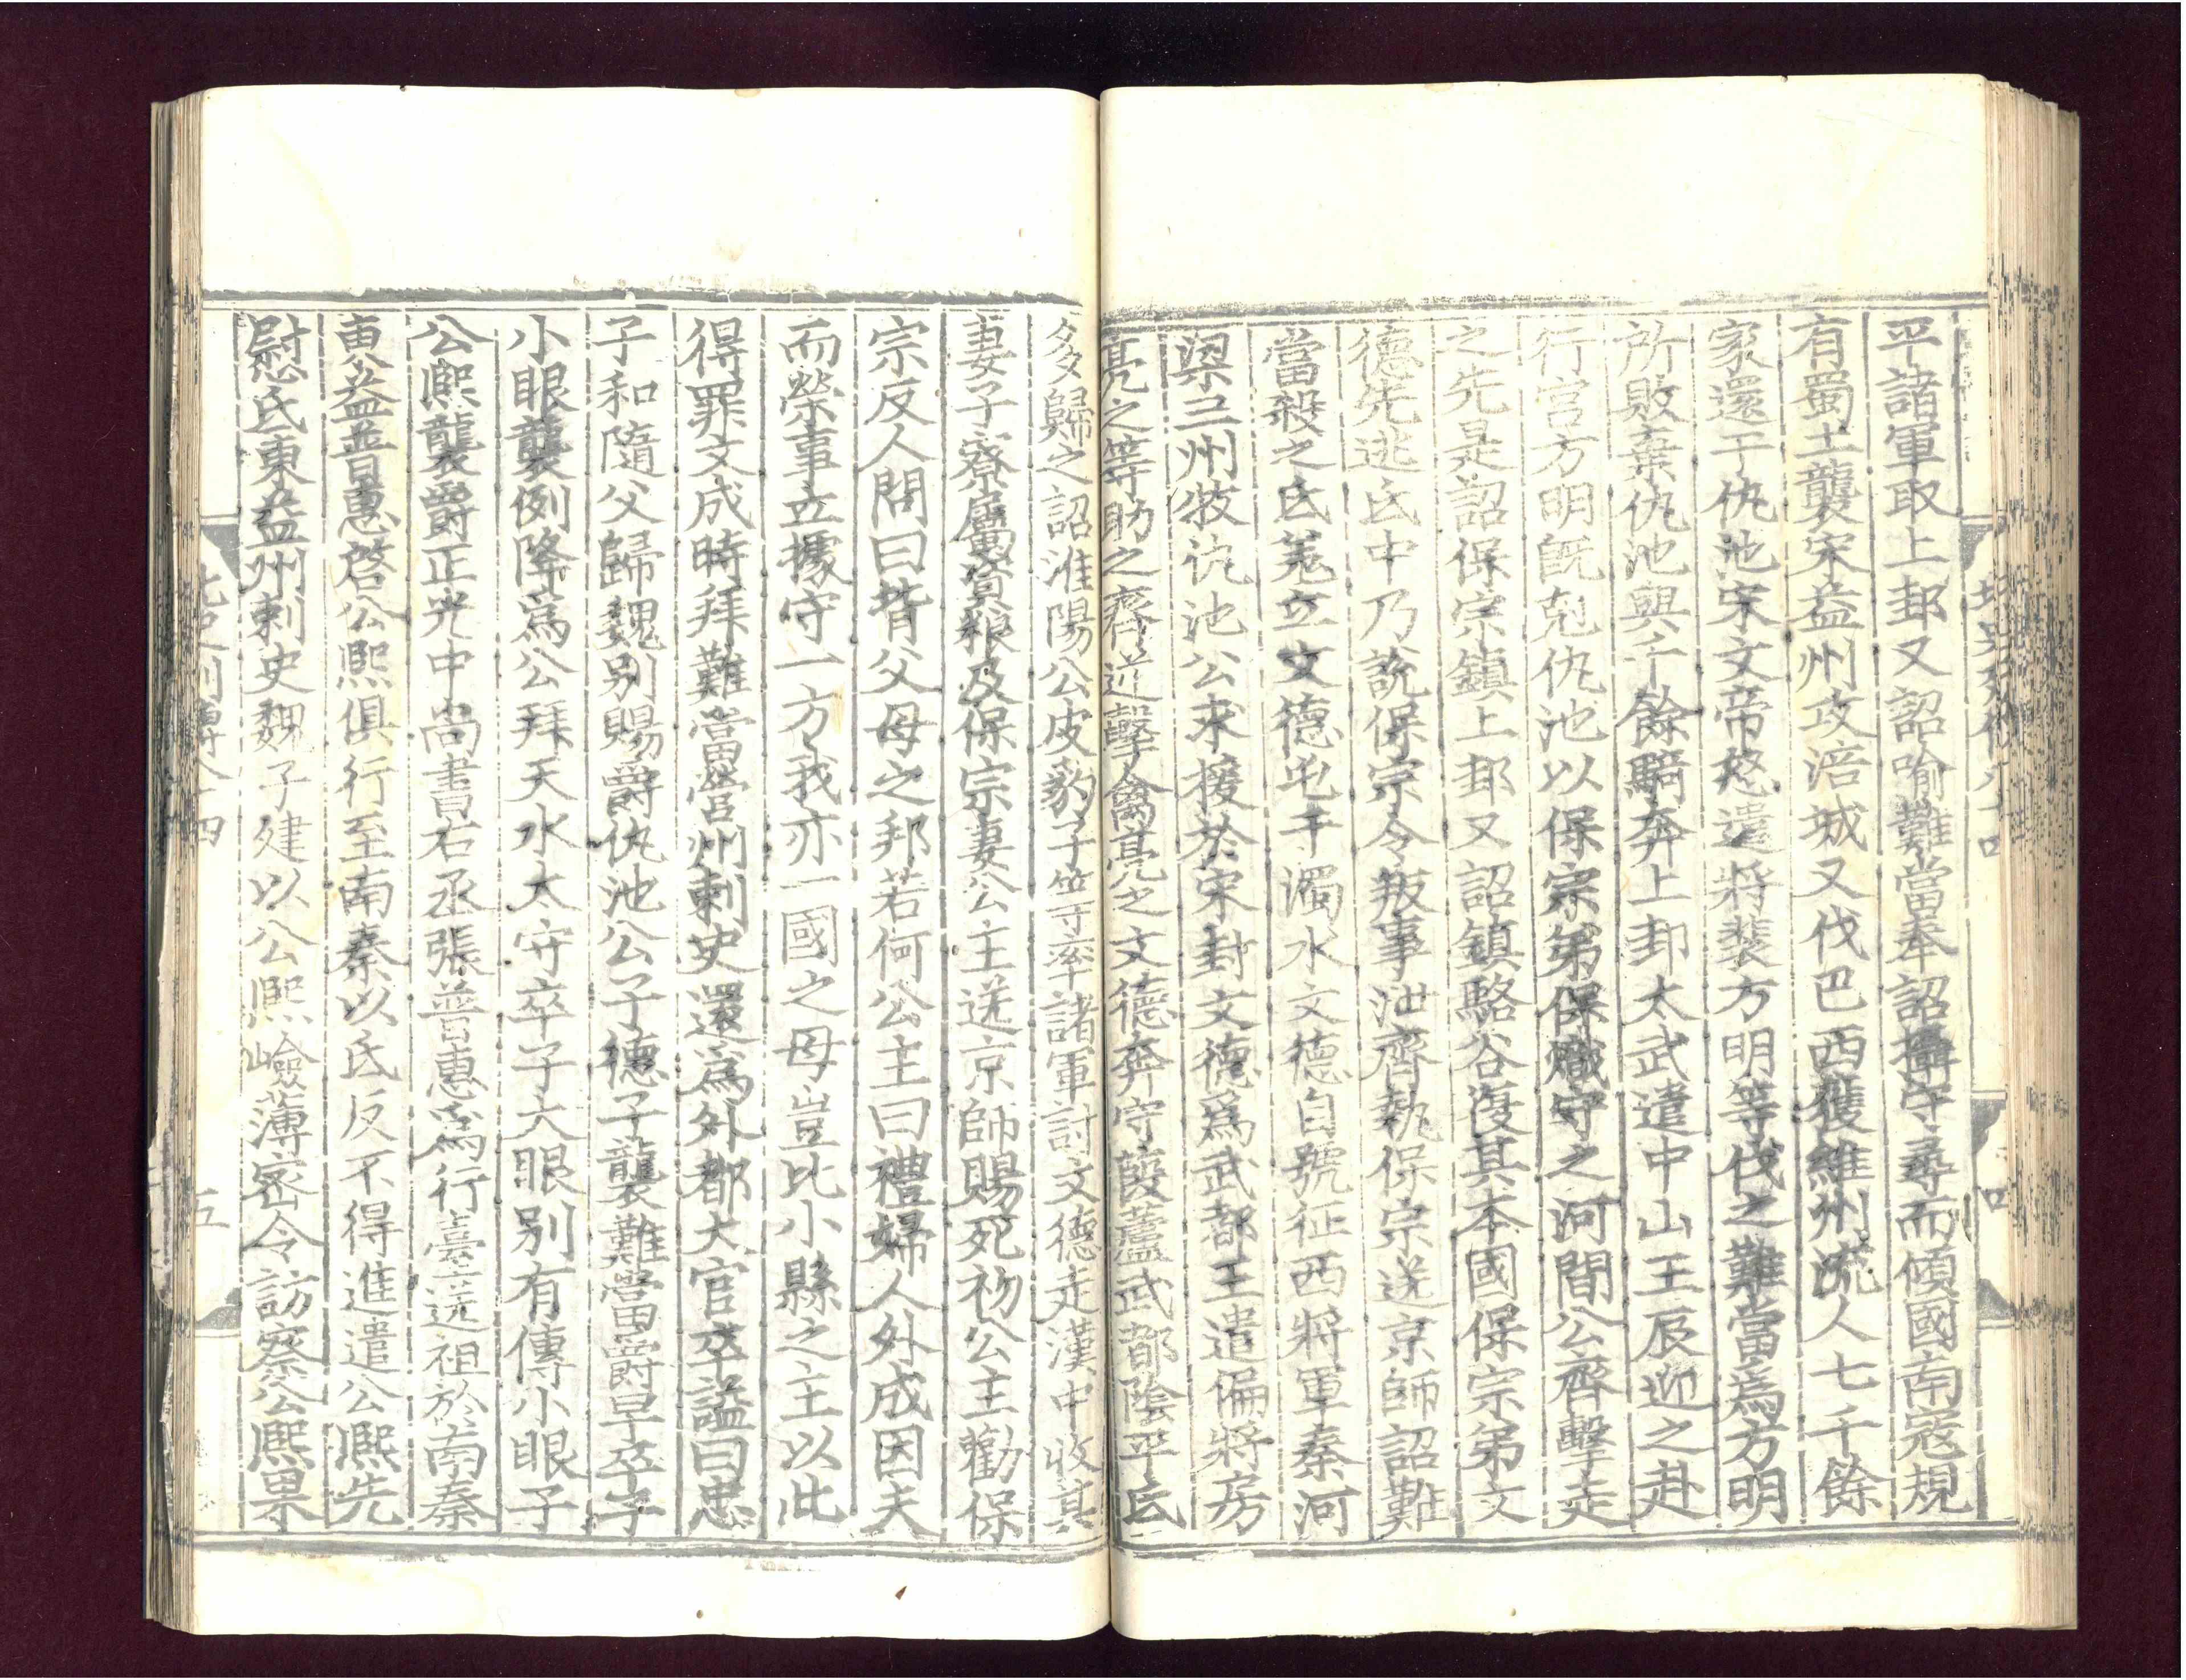 平諸軍取上邽又詔喻難當奉詔攝守尋而傾國南寇規
有蜀土襲宋益州攻涪城又伐巴西獲維州流人七千餘
家還于仇池宋文帝怒遣將裴方明等伐之難當爲方明
所敗棄仇池與千餘騎奔上邽太武遣中山王辰迎之赴
行宫方明旣克仇池以保宗弟保熾守之河間公齊擊走
之先是詔保宗鎮上邽又詔鎮駱谷復其本國保宗弟文
德先逃氐中乃說保宗令叛事泄齊執保宗送京師詔難
當殺之氐羌立文德屯于濁水文德自號征西將軍秦河
梁三州牧仇池公求援於宋封文德爲武都王遣偏將房
亮之等助之齊逆擊禽亮之文德奔守葭蘆武都陰平氐
多歸之詔淮陽公皮豹子等率諸軍討文德走漢中收其
妻子寮屬資糧及保宗妻公主送京師賜死初公主勸保
宗反人問曰背父母之邦若何公主曰禮婦人外成因夫
而榮事立據守一方我亦一國之母豈比小縣之主以此
得罪文成時拜難當營州刺史還爲外都大官卒謚曰忠
子和隨父歸魏别賜爵仇池公子德子襲難當爵早卒子
小眼襲例降爲公拜天水太守卒子大眼别有傳小眼子
公熙襲爵正光中尚書右丞張普惠爲行臺送祖於南秦
東益普惠啓公熙俱行至南秦以氐反不得進遣公熙先
慰氐東益州刺史魏子建以公熙嶮薄密令訪察公熙果
北史列傳八十四
五